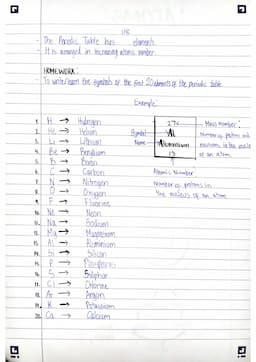 118
- The Periodic Table has elements.
- It is arranged in increasing atomic number.
HOMEWORK:
- To write/learn the symbols of the first 20 elements of the periodic table
Example:
27 Mass number:
Symbol Al Number of protons and
Name Aluminium neutrons in the nucleus
13 of an atom
Atomic Number
Number of protons in
the nucleus of an atom
1. H → Hydrogen
2. He → Helium
3. Li → Lithium
4. Be → Beryllium
5. B → Boron
6. C → Carbon
7. N → Nitrogen
8. O → Oxygen
9. F → Fluorine
10. Ne → Neon
11. Na → Sodium
12. Mg → Magnesium
13. Al → Aluminium
14. Si → Silicon
15. P → Phosphorus
16. S → Sulphur
17. Cl → Chlorine
18. Ar → Argon
19. K → Potassium
20. Ca → Calcium